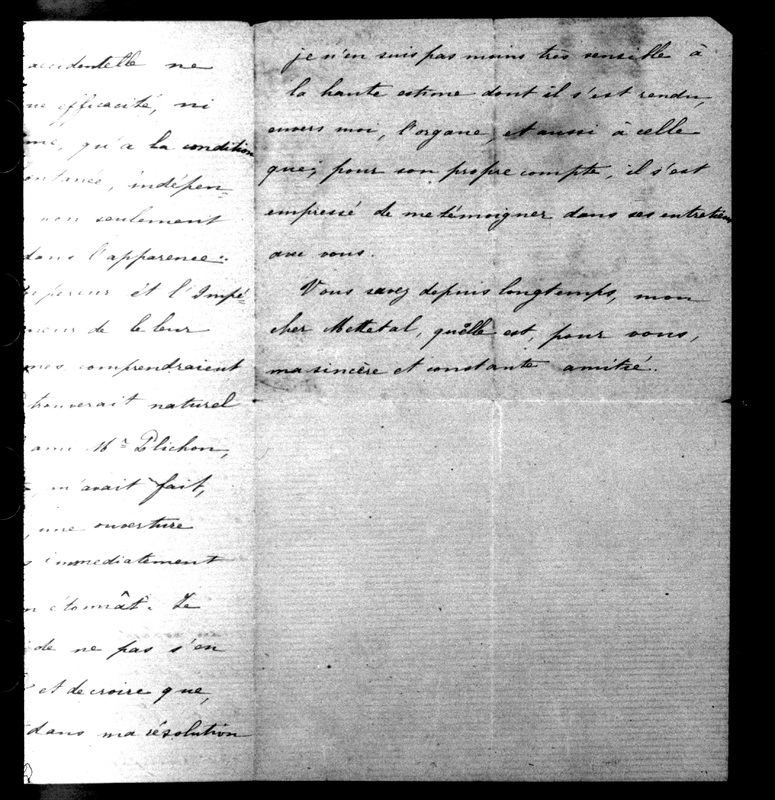 accidentelle ne
efficacité, ni
qu'à la condition
indépen-
non seulement
dans l'apparence.
et l'Impé-
de le leur
comprendraient
trouverait naturel
ami Mr Plichon,
m'avait fait,
une ouverture
immediatement
Je
de ne pas s'en
et de croire que,
dans ma résolution
je n'en suis pas moins très sensible à
la haute estime dont il s'est rendu,
envers moi, l'organe, et aussi à celle
que, pour son propre compte, il s'est
empressé de me témoigner dans ses entretiens
avec vous.
Vous savez depuis longtemps, mon
cher Mettetal, quelle est, pour vous,
ma sincère et constante amitié.